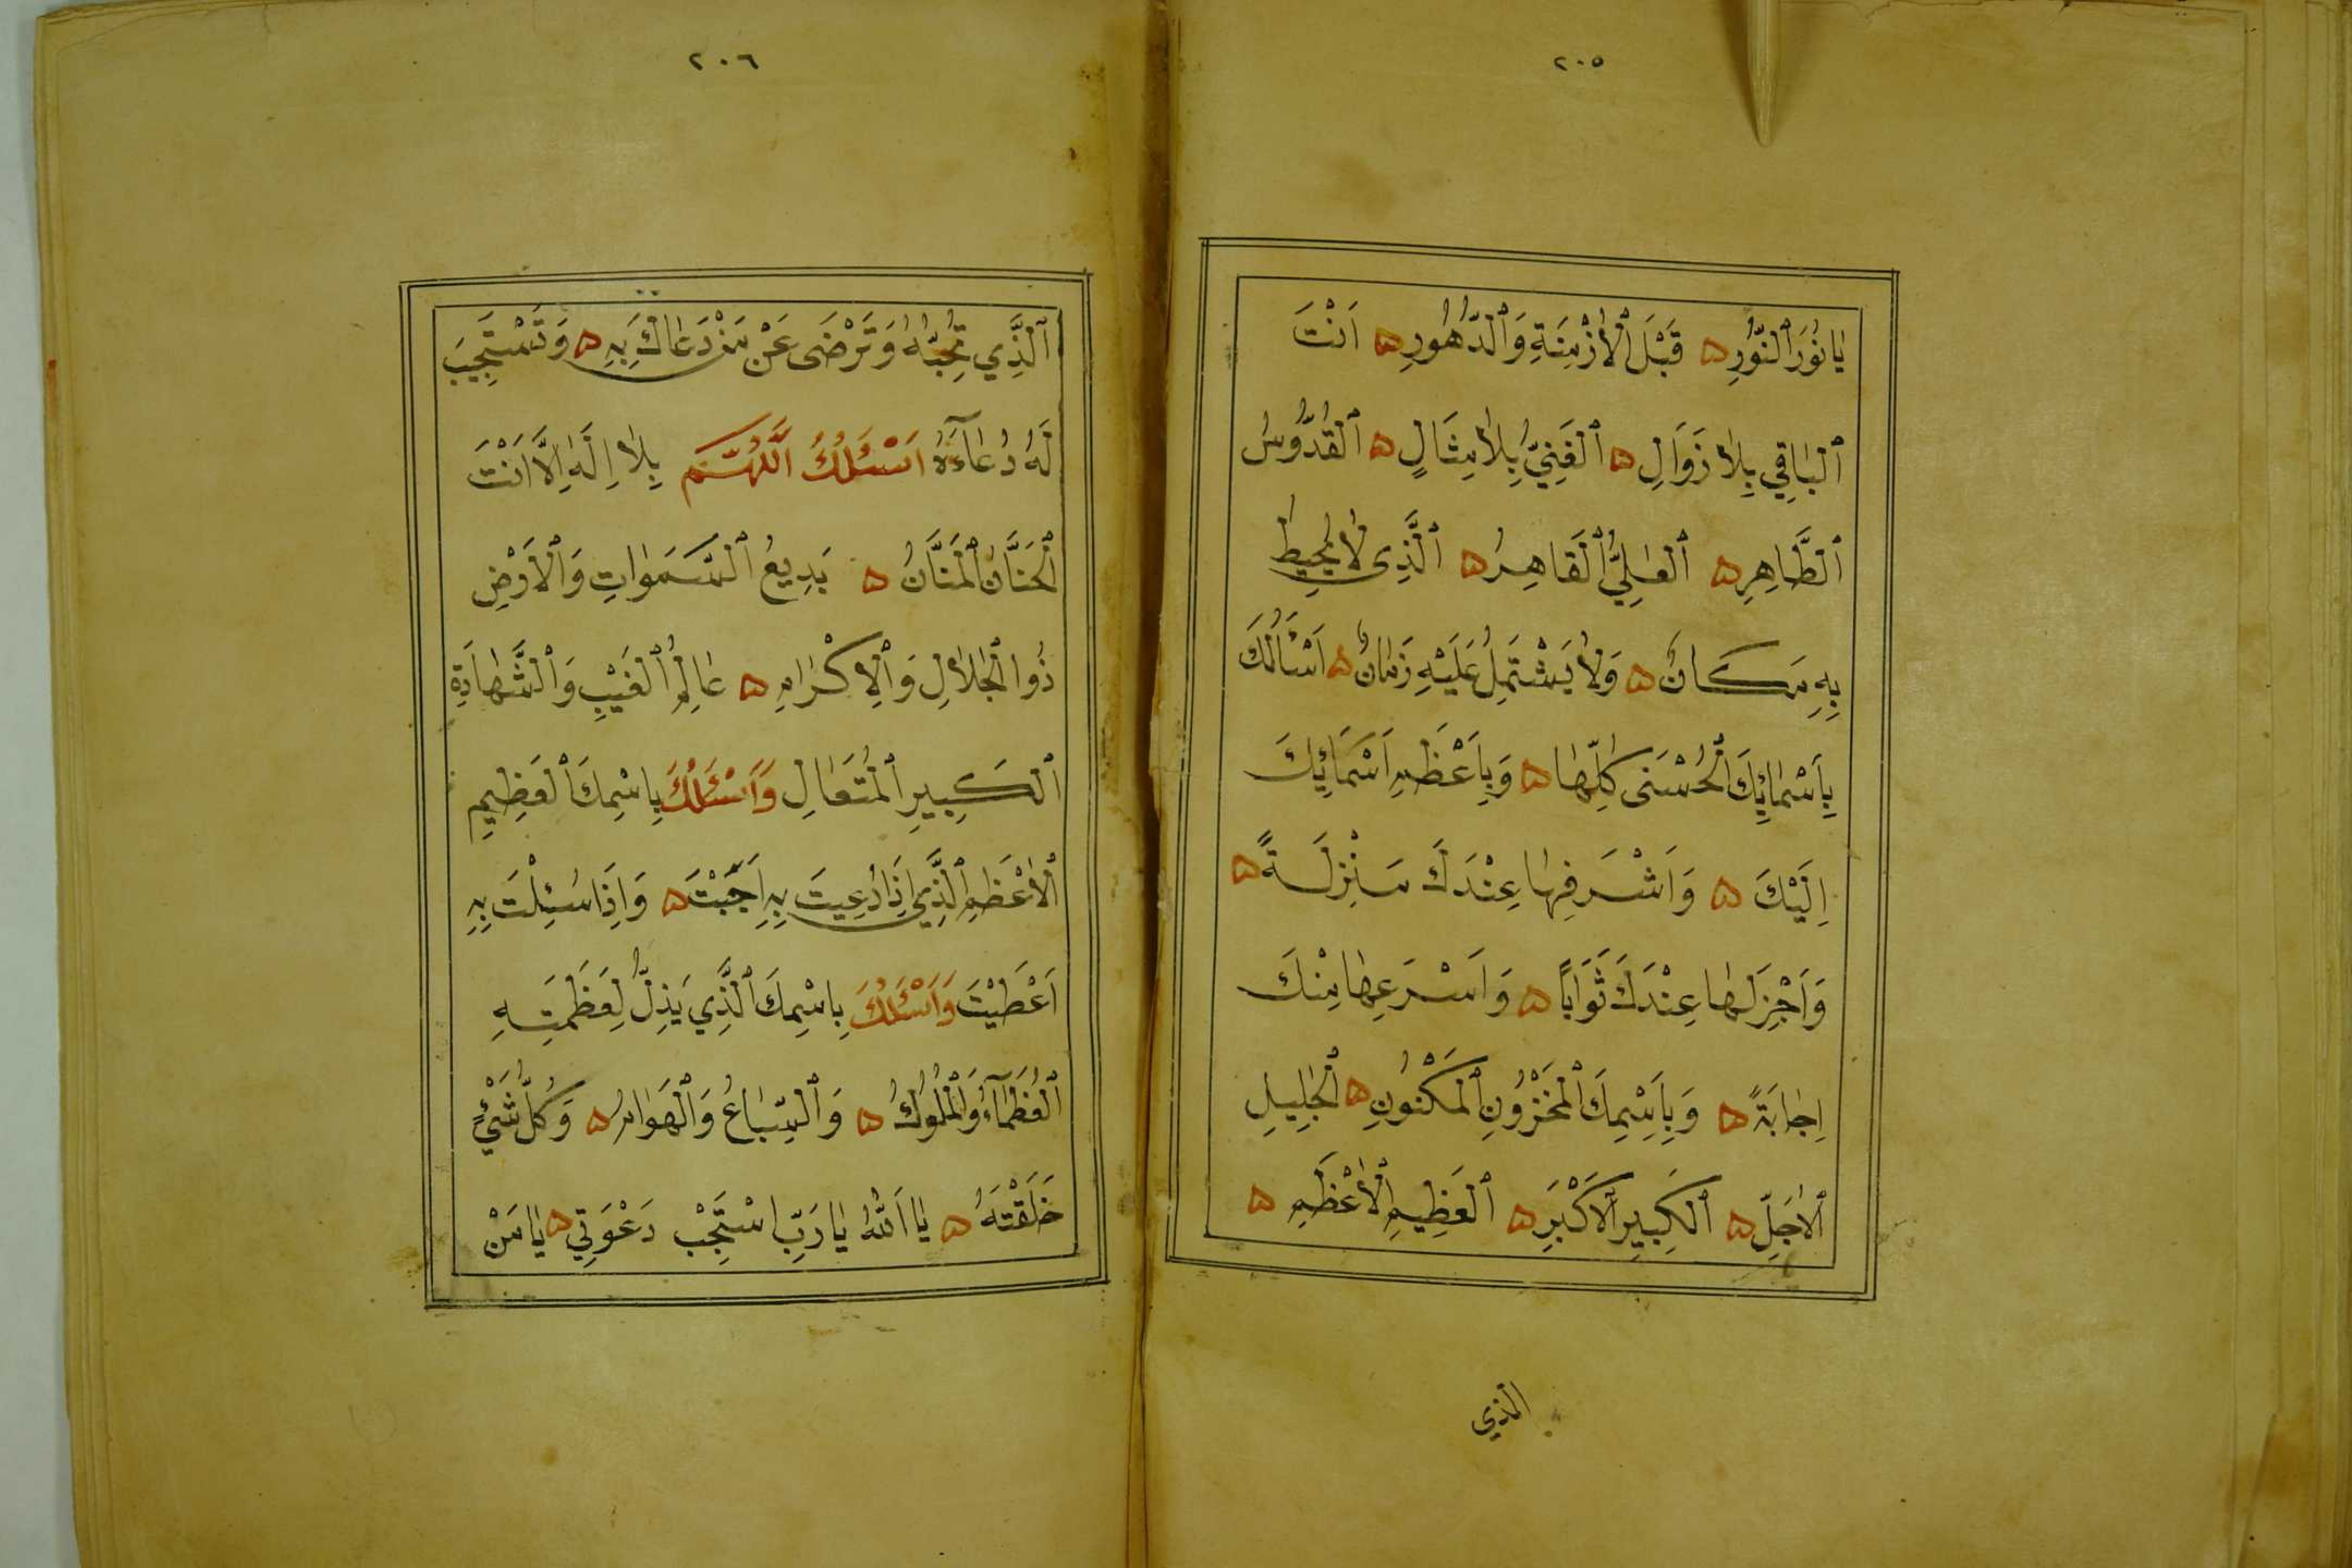 ٢٠٥
يَا نُورَ ٱلنُّورِ ۞ قَبْلَ ٱلْأَزْمِنَةِ وَٱلدُّهُورِ ۞ اَنْتَ
ٱلْبَاقِي بِلَا زَوَالٍ ۞ ٱلْغَنِيُّ بِلَا مِثَالٍ ۞ ٱلْقُدُّوسُ
ٱلطَّاهِرِ ۞ ٱلْعَلِيُّ ٱلْقَاهِرُ ۞ ٱلَّذِى لَا يُحِيطُ
بِهِ مَكَانٌ ۞ وَلَا يَشْتَمِلُ عَلَيْهِ زَمَانٌ ۞ اَسْأَلُكَ
بِأَسْمَائِكَ ٱلْحُسْنَى كُلِّهَا ۞ وَبِأَعْظَمِ اَسْمَائِكَ
اِلَيْكَ ۞ وَاَشْرَفِهَا عِنْدَكَ مَنْزِلَةً ۞
وَاَجْزَلِهَا عِنْدَكَ ثَوَابًا ۞ وَاَسْرَعِهَا مِنْكَ
اِجَابَةً ۞ وَبِاسْمِكَ ٱلْمَخْزُونِ ٱلْمَكْنُونِ ۞ ٱلْجَلِيلِ
ٱلْاَجَلِّ ۞ ٱلْكَبِيرِ ٱلْاَكْبَرِ ۞ ٱلْعَظِيمِ ٱلْأَعْظَمِ ۞
الذي
٢٠٦
ٱلَّذِي تُحِبُّهُ وَتَرْضَى عَنْ مَنْ دَعَاكَ بِهِ ۞ وَتَسْتَجِيبَ
لَهُ دُعَآءَهُ اَسْئَلُكَ ٱللَّهُمَّ بِلَا اِلَهَ اِلَّا اَنْتَ
ٱلْحَنَّانُ ٱلْمَنَّانُ ۞ بَدِيعُ ٱلسَّمَوَاتِ وَٱلْاَرْضِ
ذُوا ٱلْجَلَالِ وَٱلْاِكْرَامِ ۞ عَالِمُ ٱلْغَيْبِ وَٱلشَّهَادَةِ
ٱلْكَبِيرِ ٱلْمُتَعَالِ وَاَسْئَلُكَ بِاسْمِكَ ٱلْعَظِيمِ
ٱلْأَعْظَمِ ٱلَّذِي اِذَا دُعِيتَ بِهِ اَجَبْتَ ۞ وَاِذَا سُئِلْتَ بِهِ
اَعْطَيْتَ وَاَسْئَلُكَ بِاسْمِكَ ٱلَّذِي يَذِلُّ لِعَظَمَتِهِ
ٱلْعُظَمَآءُ وَٱلْمُلُوكُ ۞ وَٱلسِّبَاعُ وَٱلْهَوَامُ ۞ وَكُلُّ شَيْءٍ
خَلَقْتَهُ ۞ يَا اَللّٰهُ يَا رَبِّ اسْتَجِبْ دَعْوَتِي ۞ يَا مَنْ